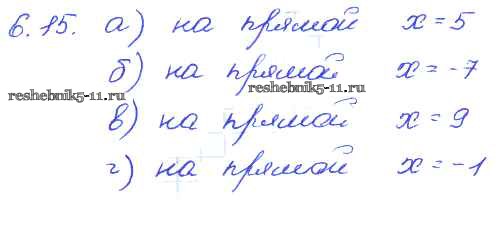 6.15. а) на прямой x = 5
б) на прямой x = -7
reshebnik5-11.ru reshebnik5-11.ru
в) на прямой x = 9
г) на прямой x = -1